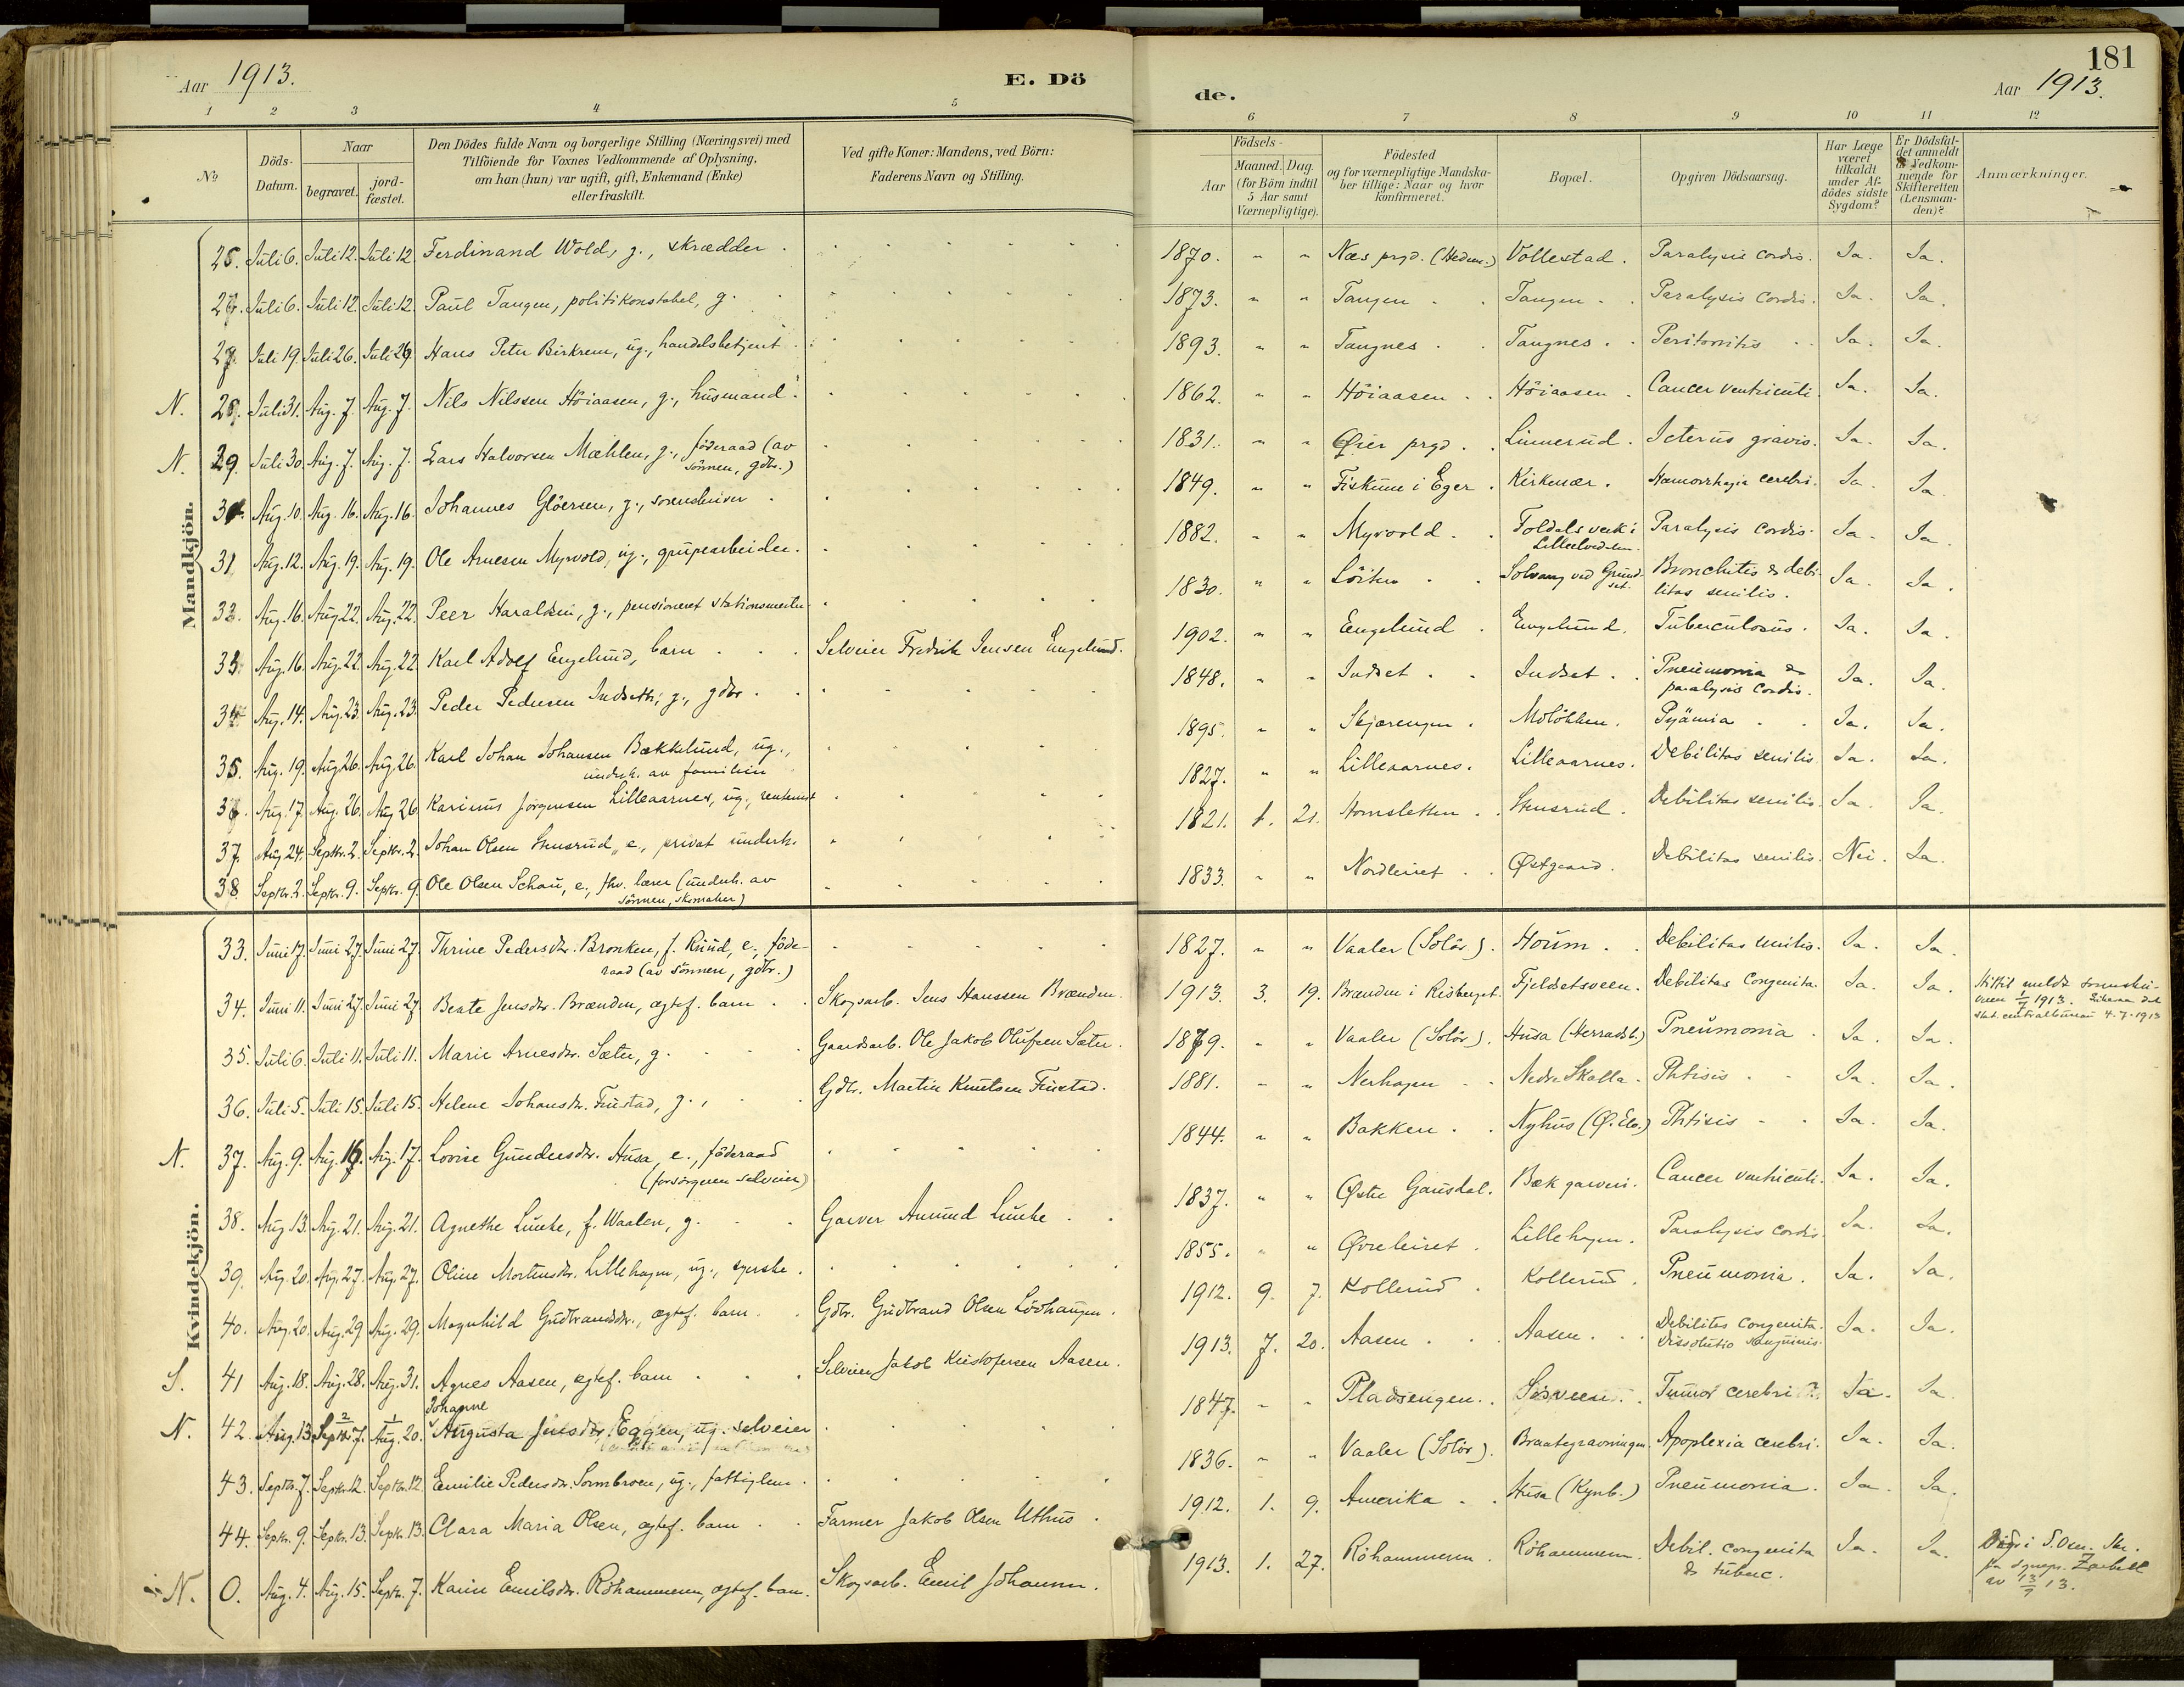 181
Aar 1913.
E. Dö
de.
Aar 1913.
1 2 3 4 5 6 7 8 9 10 11 12
No
Döds-Datum.
Naar
begravet.
jord-fæstet.
Den Dödes fulde Navn og borgerlige Stilling (Næringsvei) med
Tilföiende for Voxnes Vedkommende af Oplysning,
om han (hun) var ugift, gift, Enkemand (Enke)
eller fraskilt.
Ved gifte Koner: Mandens, ved Börn:
Faderens Navn og Stilling.
Födsels-
Aar
Maaned. Dag.
(for Börn indtil
5 Aar samt
Værnepligtige).
Födested
og for værnepligtige Mandska-
ber tillige: Naar og hvor
konfirmeret.
Bopæl.
Opgiven Dödsaarsag.
Har Læge
været
tilkaldt
under Af-
dödes sidste
Sygdom?
Er Dödsfal-
det anmeldt
til Vedkom-
mende for
Skifteretten
(Lensman-
den)?
Anmærkninger.
Mandkjön.
25. Juli 6. Juli 12. Juli 12. Ferdinand Wold, g., skrædder. 1870. " " Næs prgd. (Hedm.) Vollestad. Paralysis cordis. Ja. Ja.
27. Juli 6. Juli 12. Juli 12. Paul Tangen, politikonstabel, g. 1873. " " Tangen Tangen Paralysis cordis. Ja. Ja.
27. Juli 19. Juli 26. Juli 26. Hans Peter Birkrem, ug., handelsbetjent 1893. " " Tangnes Tangnes Peritonitis Ja. Ja.
N. 28. Juli 31. Aug. 7. Aug. 7. Nils Nilssen Höiaasen, g., husmand 1862. " " Höiaasen Höiaasen Cancer ventriculi Ja. Ja.
N. 29. Juli 30. Aug. 7. Aug. 7. Lars Halvorsen Mæhlen, g., föderaad (av
sönnen, gdbr.) 1831. " " Øier prgd. Linnerud. Icterus gravis. Ja. Ja.
30. Aug. 10. Aug. 16. Aug. 16. Johannes Glöersen, g., sorenskriver 1849. " " Fiskum i Eger Kirkenær. Hæmorrhagia cerebri. Ja. Ja.
31. Aug. 12. Aug. 19. Aug. 19. Ole Arnesen Myrvold, ug., grubearbeider. 1882. " " Myrvold Foldals verk i
Lilleelvedalen. Paralysis cordis. Ja. Ja.
32. Aug. 16. Aug. 22. Aug. 22. Peer Haraldsen, g., pensioneret stationsmester 1830. " " Löiten Solvang ved Grund-
set. Bronchitis & debi-
litas senilis. Ja. Ja.
33. Aug. 16. Aug. 22. Aug. 22. Karl Adolf Engelund, barn Selveier Fredrik Jensen Engelund. 1902. " " Engelund Engelund. Tuberculosus. Ja. Ja.
34. Aug. 14. Aug. 23. Aug. 23. Peder Pedersen Indseth, g., gdbr. 1848. " " Indset Indset Pneumonia &
paralysis cordis. Ja. Ja.
35. Aug. 19. Aug. 26. Aug. 26. Karl Johan Johansen Bækkelund, ug.,
underh. av familien 1895. " " Skjærengen Moløkken. Pyämia Ja. Ja.
36. Aug. 17. Aug. 26. Aug. 26. Karinus Jörgensen Lilleaarnes, ug., rentenist 1827. " " Lilleaarnes. Lilleaarnes. Debilitas senilis Ja. Ja.
37. Aug. 24. Septbr. 2. Septbr. 2. Johan Olsen Stensrud, e., privat underh. 1821. 1. 21. Homsletten Stensrud. Debilitas senilis. Ja. Ja.
38. Septbr. 2. Septbr. 9. Septbr. 9. Ole Olsen Schou, e., fhv. lærer (underh. av
sönnen, skomaker) 1833. " " Nordleiret Østgaard. Debilitas senilis. Nei. Ja.
Kvindekjön.
33. Juni 17. Juni 27. Juni 27. Thrine Pedersdtr. Bronken, f. Ruud, e., föde-
raad (av sönnen, gdbr.) 1827. " " Vaaler (Solör). Houm Debilitas senilis. Ja. Ja.
34. Juni 11. Juni 27. Juni 27. Beate Jensdtr. Brænden, ægtef. barn Skogsarb. Jens Hanssen Brænden. 1913. 3. 19. Brænden i Risberget. Fjeldsetsveen. Debilitas congenita. Ja. Ja. 1/7 1913. 4-7-1913
35. Juli 6. Juli 11. Juli 11. Marie Arnesdtr. Sæter, g. Gaardsarb. Ole Jakob Olufsen Sæter. 1879. " " Vaaler (Solör). Husa (Herradsb.) Pneumonia Ja. Ja.
36. Juli 5. Juli 15. Juli 15. Helene Johansdtr. Frustad, g., Gdbr. Martin Knutsen Frustad. 1881. " " Nerhagen Nedre Skalla Phtisis Ja. Ja.
N. 37. Aug. 9. Aug. 16. Aug. 17. Lovise Gundersdtr. Husa, e., föderaad
(forsörgeren selveier) 1844. " " Bakken Nyhus (Ø. Elv.) Phtisis Ja. Ja.
38. Aug. 13. Aug. 21. Aug. 21. Agnethe Lunke, f. Waalen, g. Garver Amund Lunke 1837. " " Østre Gausdal. Bæk garveri. Cancer ventriculi. Ja. Ja.
39. Aug. 20. Aug. 27. Aug. 27. Oline Mortensdtr. Lillehagen, ug., syerske. 1855. " " Øvreleiret Lillehagen. Paralysis cordis Ja. Ja.
40. Aug. 20. Aug. 29. Aug. 29. Magnhild Gudbrandsdtr., ægtef. barn Gdbr. Gudbrand Olsen Lövhaugen. 1912. 9. 7. Kollerud Kollerud. Pneumonia. Ja. Ja.
S. 41 Aug. 18. Aug. 28. Aug. 31. Agnes Aasen, ægtef. barn Selveier Jakob Kristofersen Aasen. 1913. 7. 20. Aasen Aasen Debilitas congenita.
Dissolutio sanguinis. Ja. Ja.
N. 42. Aug. 13. Johanne
Augusta Jensdtr. Eggen, ug. selveier 1847. " " Pladsengen. Tumor cerebri ?. Ja. Ja.
43. Septbr. 7. Septbr. 12. Septbr. 12. Emilie Pedersdtr. Sormbroen, ug., fattiglem. 1836. " " Vaaler (Solör). Braategravningen. Apoplexia cerebri. Ja. Ja.
44. Septbr. 9. Septbr. 13. Septbr. 13. Clara Maria Olsen, ægtef. barn Farmer Jakob Olsen Uthus 1912. 1. 9. Amerika Husa (Kynb.) Pneumonia. Ja. Ja.
N. O. Aug. 4. Aug. 15. Septbr. 7. Karin Emilsdtr. Röhammeren, ægtef. barn. Skogsarb. Emil Johansen. 1913. 1. 27. Röhammeren. Röhammeren. Debil. congenita
& tuberc. Ja. Ja.